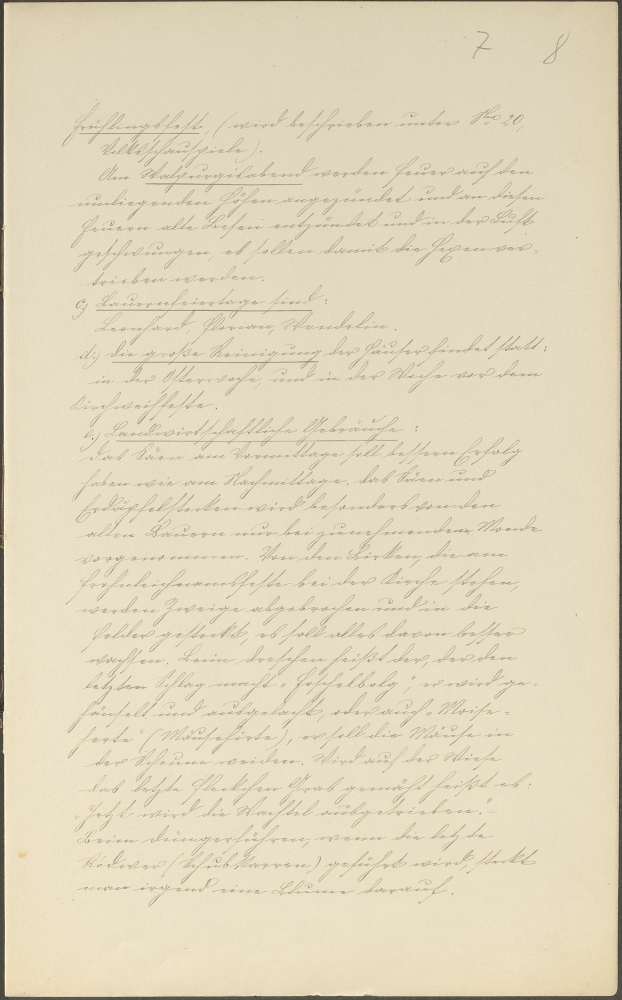 7 8
Frühlingsfest, (wird beschrieben unter No 20,
Volksschauspiele).
Am Walpurgisabend werden Feuer auf den
umliegenden Höhen angezündet und an diesen
Feuern alte Besen entzündet und in der Luft
geschwungen, es sollen damit die Hexen ver-
trieben werden.
c) Bauernfeiertage sind:
Leonhard, Florian, Wendelin.
d.) die große Reinigung der Häuser findet statt:
in der Osterwoche, und in der Woche vor dem
Kirchweihfeste.
e.) Landwirtschaftliche Gebräuche:
das Säen am Vormittage soll bessern Erfolg
haben wie am Nachmittage. das Säen und
Erdäpfelstecken wird besonders von den
alten Bauern nur bei zunehmendem Monde
vorgenommen. Von den Birken, die am
Frohnleichnamsfeste bei der Kirche stehen,
werden Zweige abgebrochen und in die
Felder gesteckt, es soll alles davon besser
wachsen. Beim dreschen heißt der, der den
letzten Schlag macht, er wird ge-
hänselt und ausgelacht, oder auch „Moise-
herte" (Mäusehirte), er soll die Mäuse in
der Scheune weiden. Wird auf der Wiese
das letzte Fleckchen Gras gemäht heißt es:
„Jetzt wird die Wachtel ausgetrieben."
Beim düngerführen, wenn die letzte
(Schubkarren) geführt wird, steckt
man irgend eine Blume darauf.